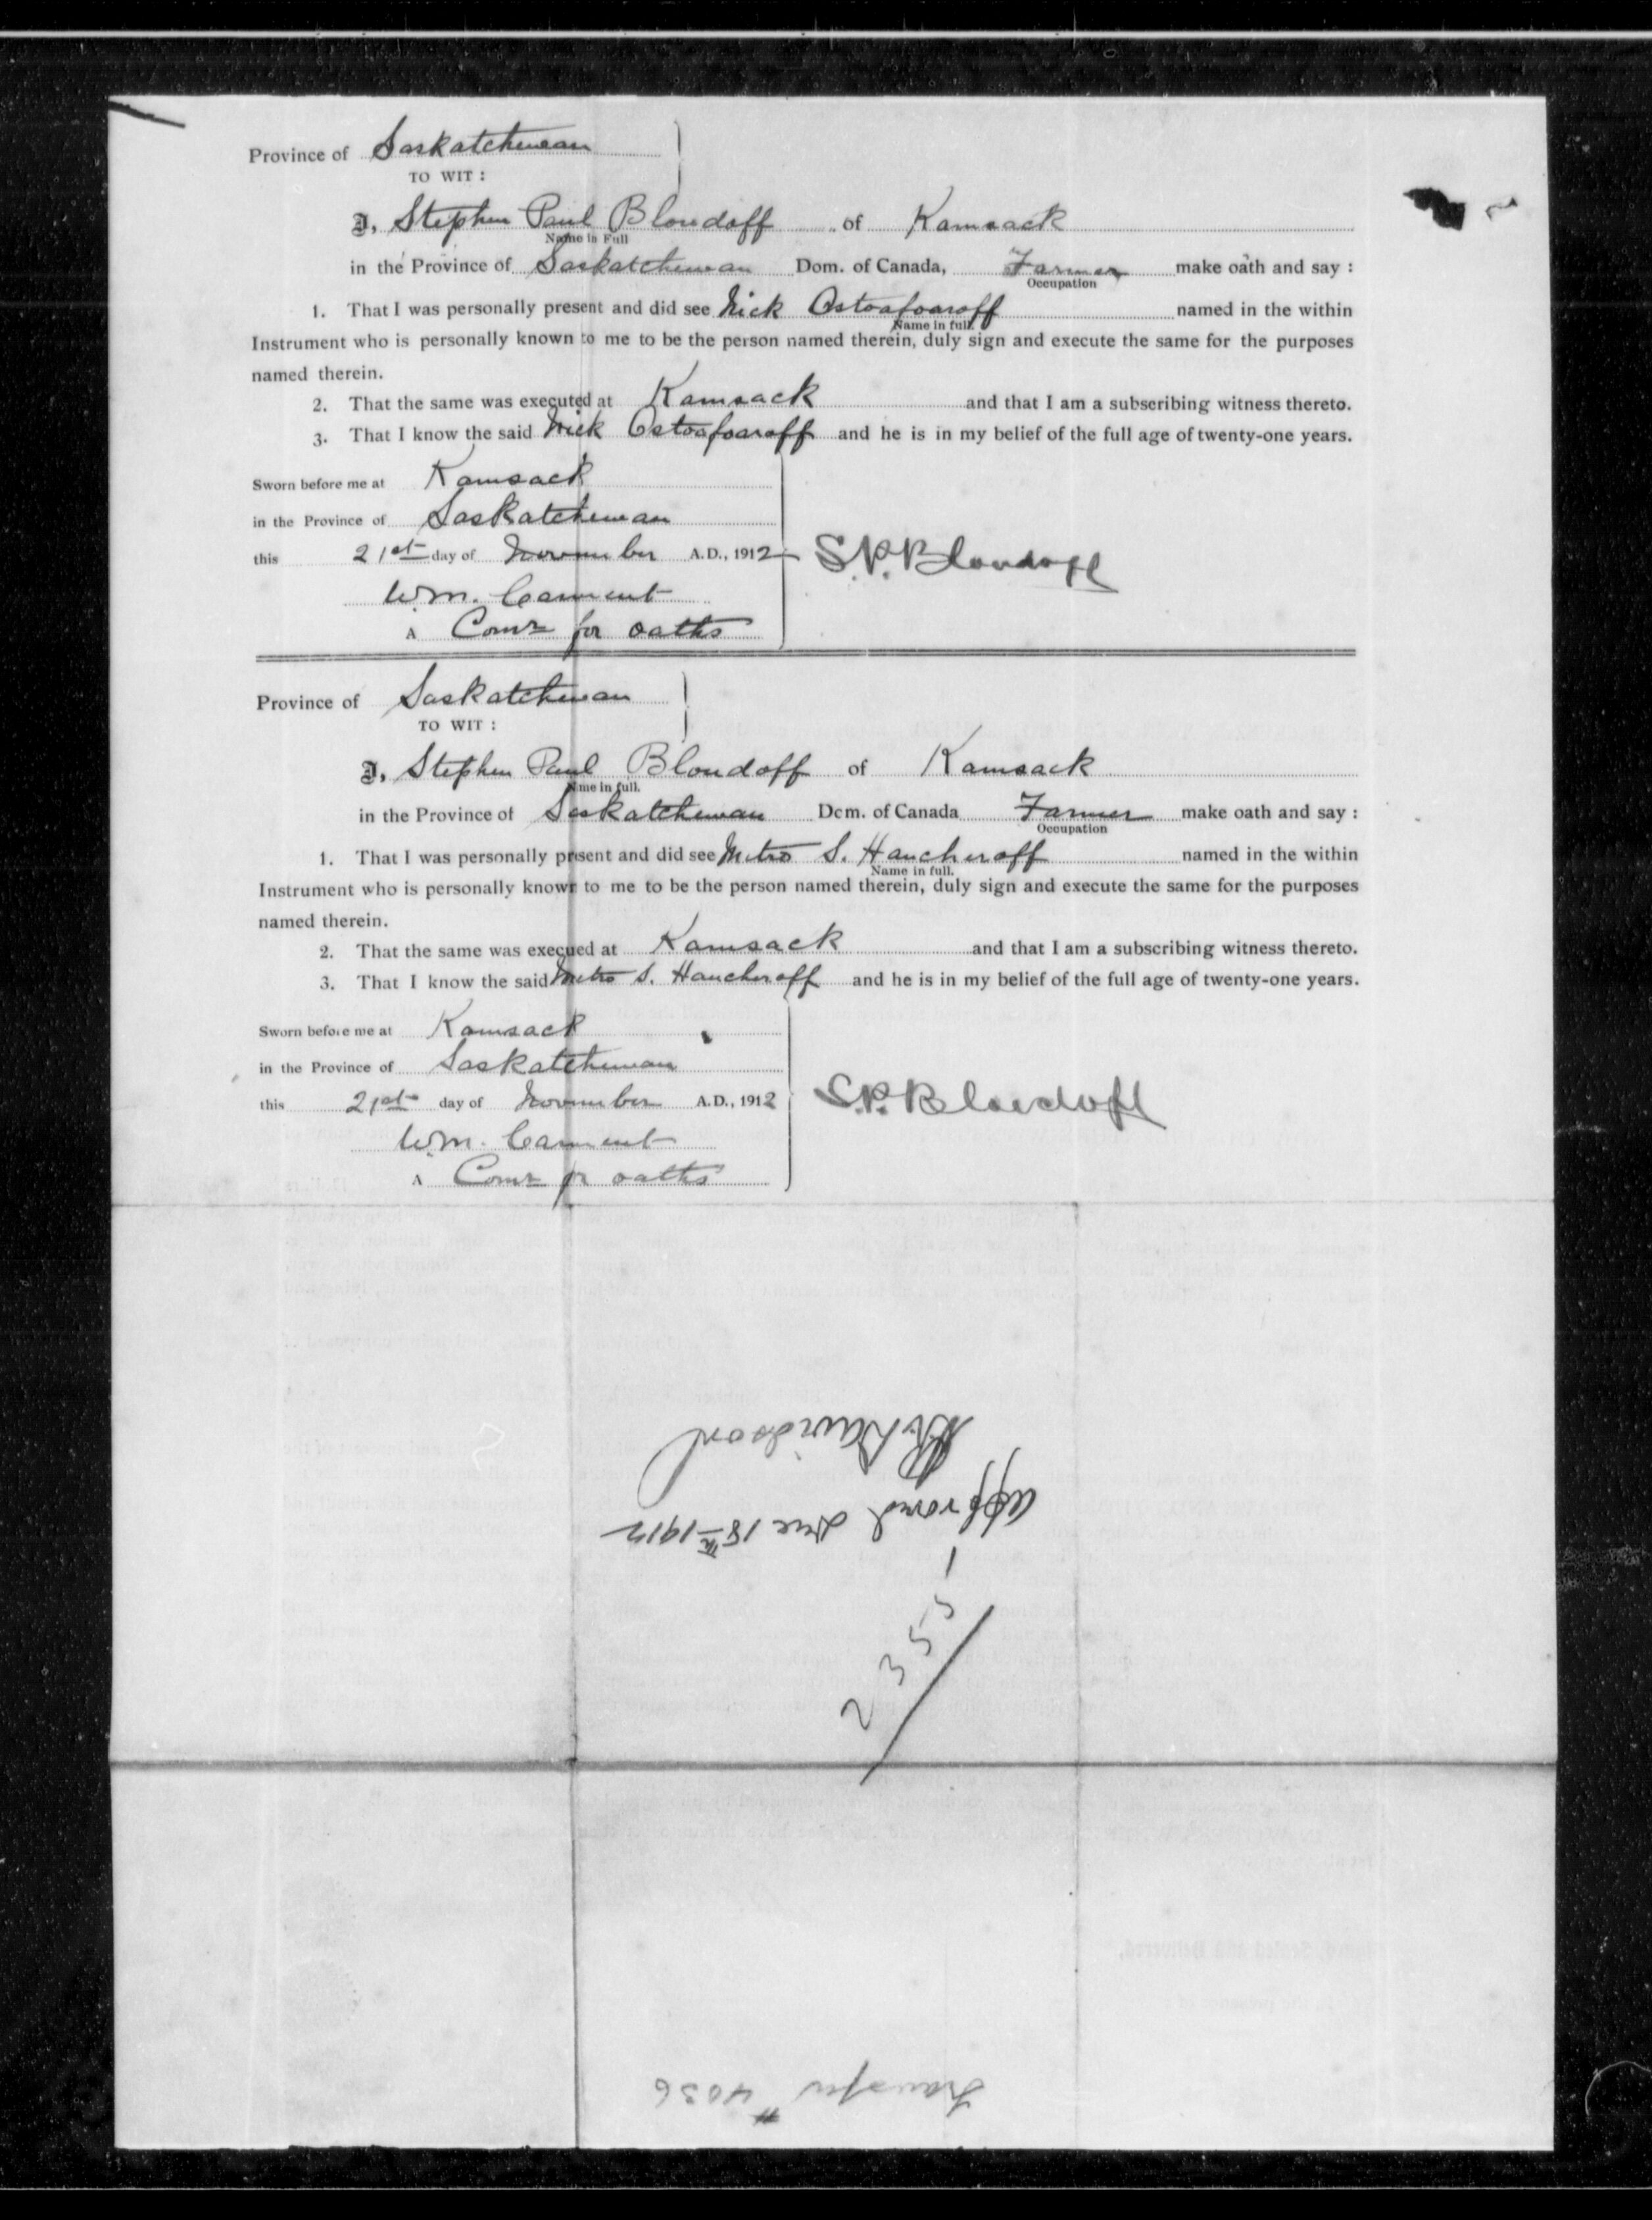 Province of Saskatchewan
TO WIT :
I, Stephen Paul Blondoff of Kamsack
Name in Full
in the Province of Saskatchewan Dom. of Canada, Farmer make oath and say :
Occupation
1. That I was personally present and did see Nick Ostoafoaroff named in the within
Name in full.
Instrument who is personally known to me to be the person named therein, duly sign and execute the same for the purposes
named therein.
2. That the same was executed at Kamsack and that I am a subscribing witness thereto.
3. That I know the said Nick Ostoafoaroff and he is in my belief of the full age of twenty-one years.
Sworn before me at Kamsack
in the Province of Saskatchewan
this 21st day of November A.D., 1912 S.P. Blondoff
Wm. Carment
A Comr for oaths
Province of Saskatchewan
TO WIT :
I, Stephen Paul Blondoff of Kamsack
Name in full.
in the Province of Saskatchewan Dom. of Canada Farmer make oath and say :
Occupation
1. That I was personally present and did see Metro S. Hancheroff named in the within
Name in full.
Instrument who is personally known to me to be the person named therein, duly sign and execute the same for the purposes
named therein.
2. That the same was execued at Kamsack and that I am a subscribing witness thereto.
3. That I know the said Metro S. Hancheroff and he is in my belief of the full age of twenty-one years.
Sworn before me at Kamsack
in the Province of Saskatchewan
this 21st day of November A.D., 1912 S.P. Blondoff
Wm. Carment
A Comr for oaths
Davidson
Approved Dec 18th 1912
2355
Transfer # 4036